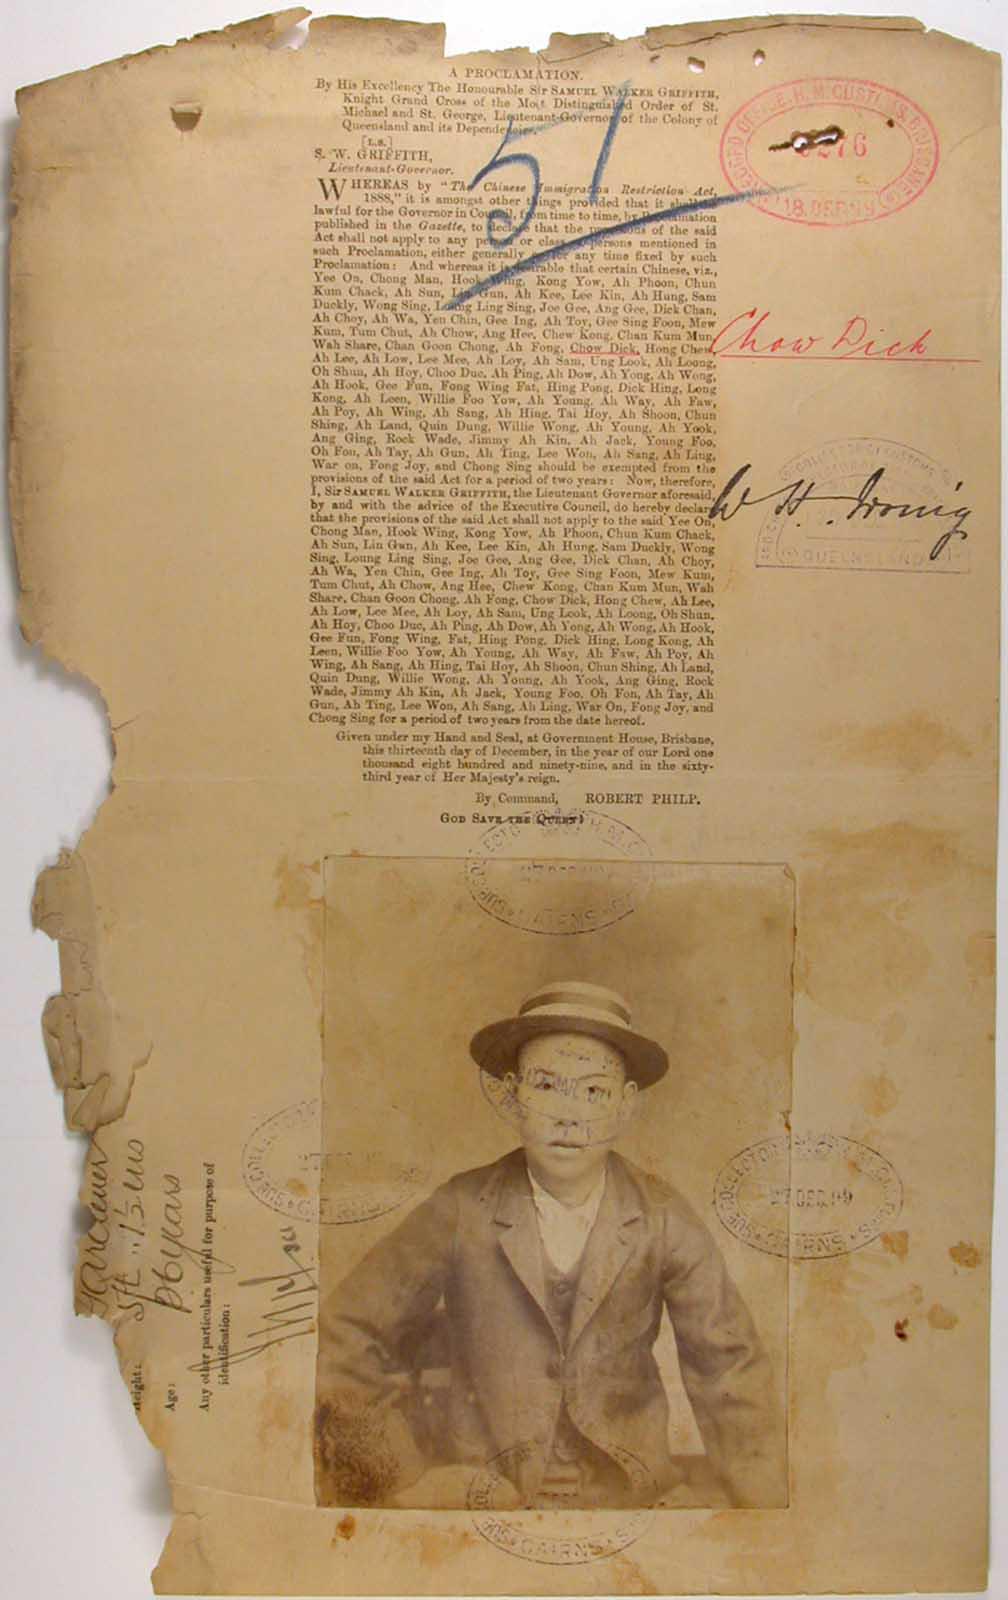 A PROCLAMATION.
By His Excellency The Honourable Sir SAMUEL WALKER GRIFFITH,
Knight Grand Cross of the Most Distinguished Order of St.
Michael and St. George, Lieutenant-Governor of the Colony of
Queensland and its Dependencies.
[L.S.]
S. W. GRIFFITH,
Lieutenant-Governor.
WHEREAS by "The Chinese Immigration Restriction Act,
1888," it is amongst other things provided that it shall be
lawful for the Governor in Council, from time to time, by Proclamation
published in the Gazette, to declare that the provisions of the said
Act shall not apply to any person or class of persons mentioned in
such Proclamation, either generally or for any time fixed by such
Proclamation: And whereas it is desirable that certain Chinese, viz.,
Yee On, Chong Man, Hook Wing, Kong Yow, Ah Phoon, Chun
Kum Chack, Ah Sun, Lin Gun, Ah Kee, Lee Kin, Ah Hung, Sam
Duckly, Wong Sing, Loung Ling Sing, Joe Gee, Ang Gee, Dick Chan,
Ah Choy, Ah Wa, Yen Chin, Gee Ing, Ah Toy, Gee Sing Foon, Mew
Kum, Tum Chut, Ah Chow, Ang Hee, Chew Kong, Chan Kum Mun,
Wah Share, Chan Goon Chong, Ah Fong, Chow Dick, Hong Chew,
Ah Lee, Ah Low, Lee Mee, Ah Loy, Ah Sam, Ung Look, Ah Loong,
Oh Shun, Ah Hoy, Choo Duc, Ah Ping, Ah Dow, Ah Yong, Ah Wong,
Ah Hook, Gee Fun, Fong Wing Fat, Hing Pong, Dick Hing, Long
Kong, Ah Leen, Willie Foo Yow, Ah Young, Ah Way, Ah Faw,
Ah Poy, Ah Wing, Ah Sang, Ah Hing, Tai Hoy, Ah Shoon, Chun
Shing, Ah Land, Quin Dung, Willie Wong, Ah Young, Ah Yook,
Ang Ging, Rock Wade, Jimmy Ah Kin, Ah Jack, Young Foo,
Oh Fon, Ah Tay, Ah Gun, Ah Ting, Lee Won, Ah Sang, Ah Ling,
War on, Fong Joy, and Chong Sing should be exempted from the
provisions of the said Act for a period of two years: Now, therefore,
I, Sir SAMUEL WALKER GRIFFITH, the Lieutenant Governor aforesaid,
by and with the advice of the Executive Council, do hereby declare
that the provisions of the said Act shall not apply to the said Yee On,
Chong Man, Hook Wing, Kong Yow, Ah Phoon, Chun Kum Chack,
Ah Sun, Lin Gun, Ah Kee, Lee Kin, Ah Hung, Sam Duckly, Wong
Sing, Loung Ling Sing, Joe Gee, Ang Gee, Dick Chan, Ah Choy,
Ah Wa, Yen Chin, Gee Ing, Ah Toy, Gee Sing Foon, Mew Kum,
Tum Chut, Ah Chow, Ang Hee, Chew Kong, Chan Kum Mun, Wah
Share, Chan Goon Chong, Ah Fong, Chow Dick, Hong Chew, Ah Lee,
Ah Low, Lee Mee, Ah Loy, Ah Sam, Ung Look, Ah Loong, Oh Shun,
Ah Hoy, Choo Duc, Ah Ping, Ah Dow, Ah Yong, Ah Wong, Ah Hook,
Gee Fun, Fong Wing, Fat, Hing Pong, Dick Hing, Long Kong, Ah
Leen, Willie Foo Yow, Ah Young, Ah Way, Ah Faw, Ah Poy, Ah
Wing, Ah Sang, Ah Hing, Tai Hoy, Ah Shoon, Chun Shing, Ah Land,
Quin Dung, Willie Wong, Ah Young, Ah Yook, Ang Ging, Rock
Wade, Jimmy Ah Kin, Ah Jack, Young Foo, Oh Fon, Ah Tay, Ah
Gun, Ah Ting, Lee Won, Ah Sang, Ah Ling, War On, Fong Joy, and
Chong Sing for a period of two years from the date hereof.
Given under my Hand and Seal, at Government House, Brisbane,
this thirteenth day of December, in the year of our Lord one
thousand eight hundred and ninety-nine, and in the sixty-
third year of Her Majesty's reign.
By Command, ROBERT PHILP.
GOD SAVE THE QUEEN!
51
H. M. CUSTOMS, BRISBANE
18. DER 99
Chow Dick
W H
QUEENSLAND
CAIRNS
SUB-COLLECTOR
CAIRNS
SUB-COLLECTOR
27 DEC 99
CAIRNS
CAIRNS
Gardener
Height: 5ft .. 1½ ins
Age: 26 years
Any other particulars useful for purpose of
identification: